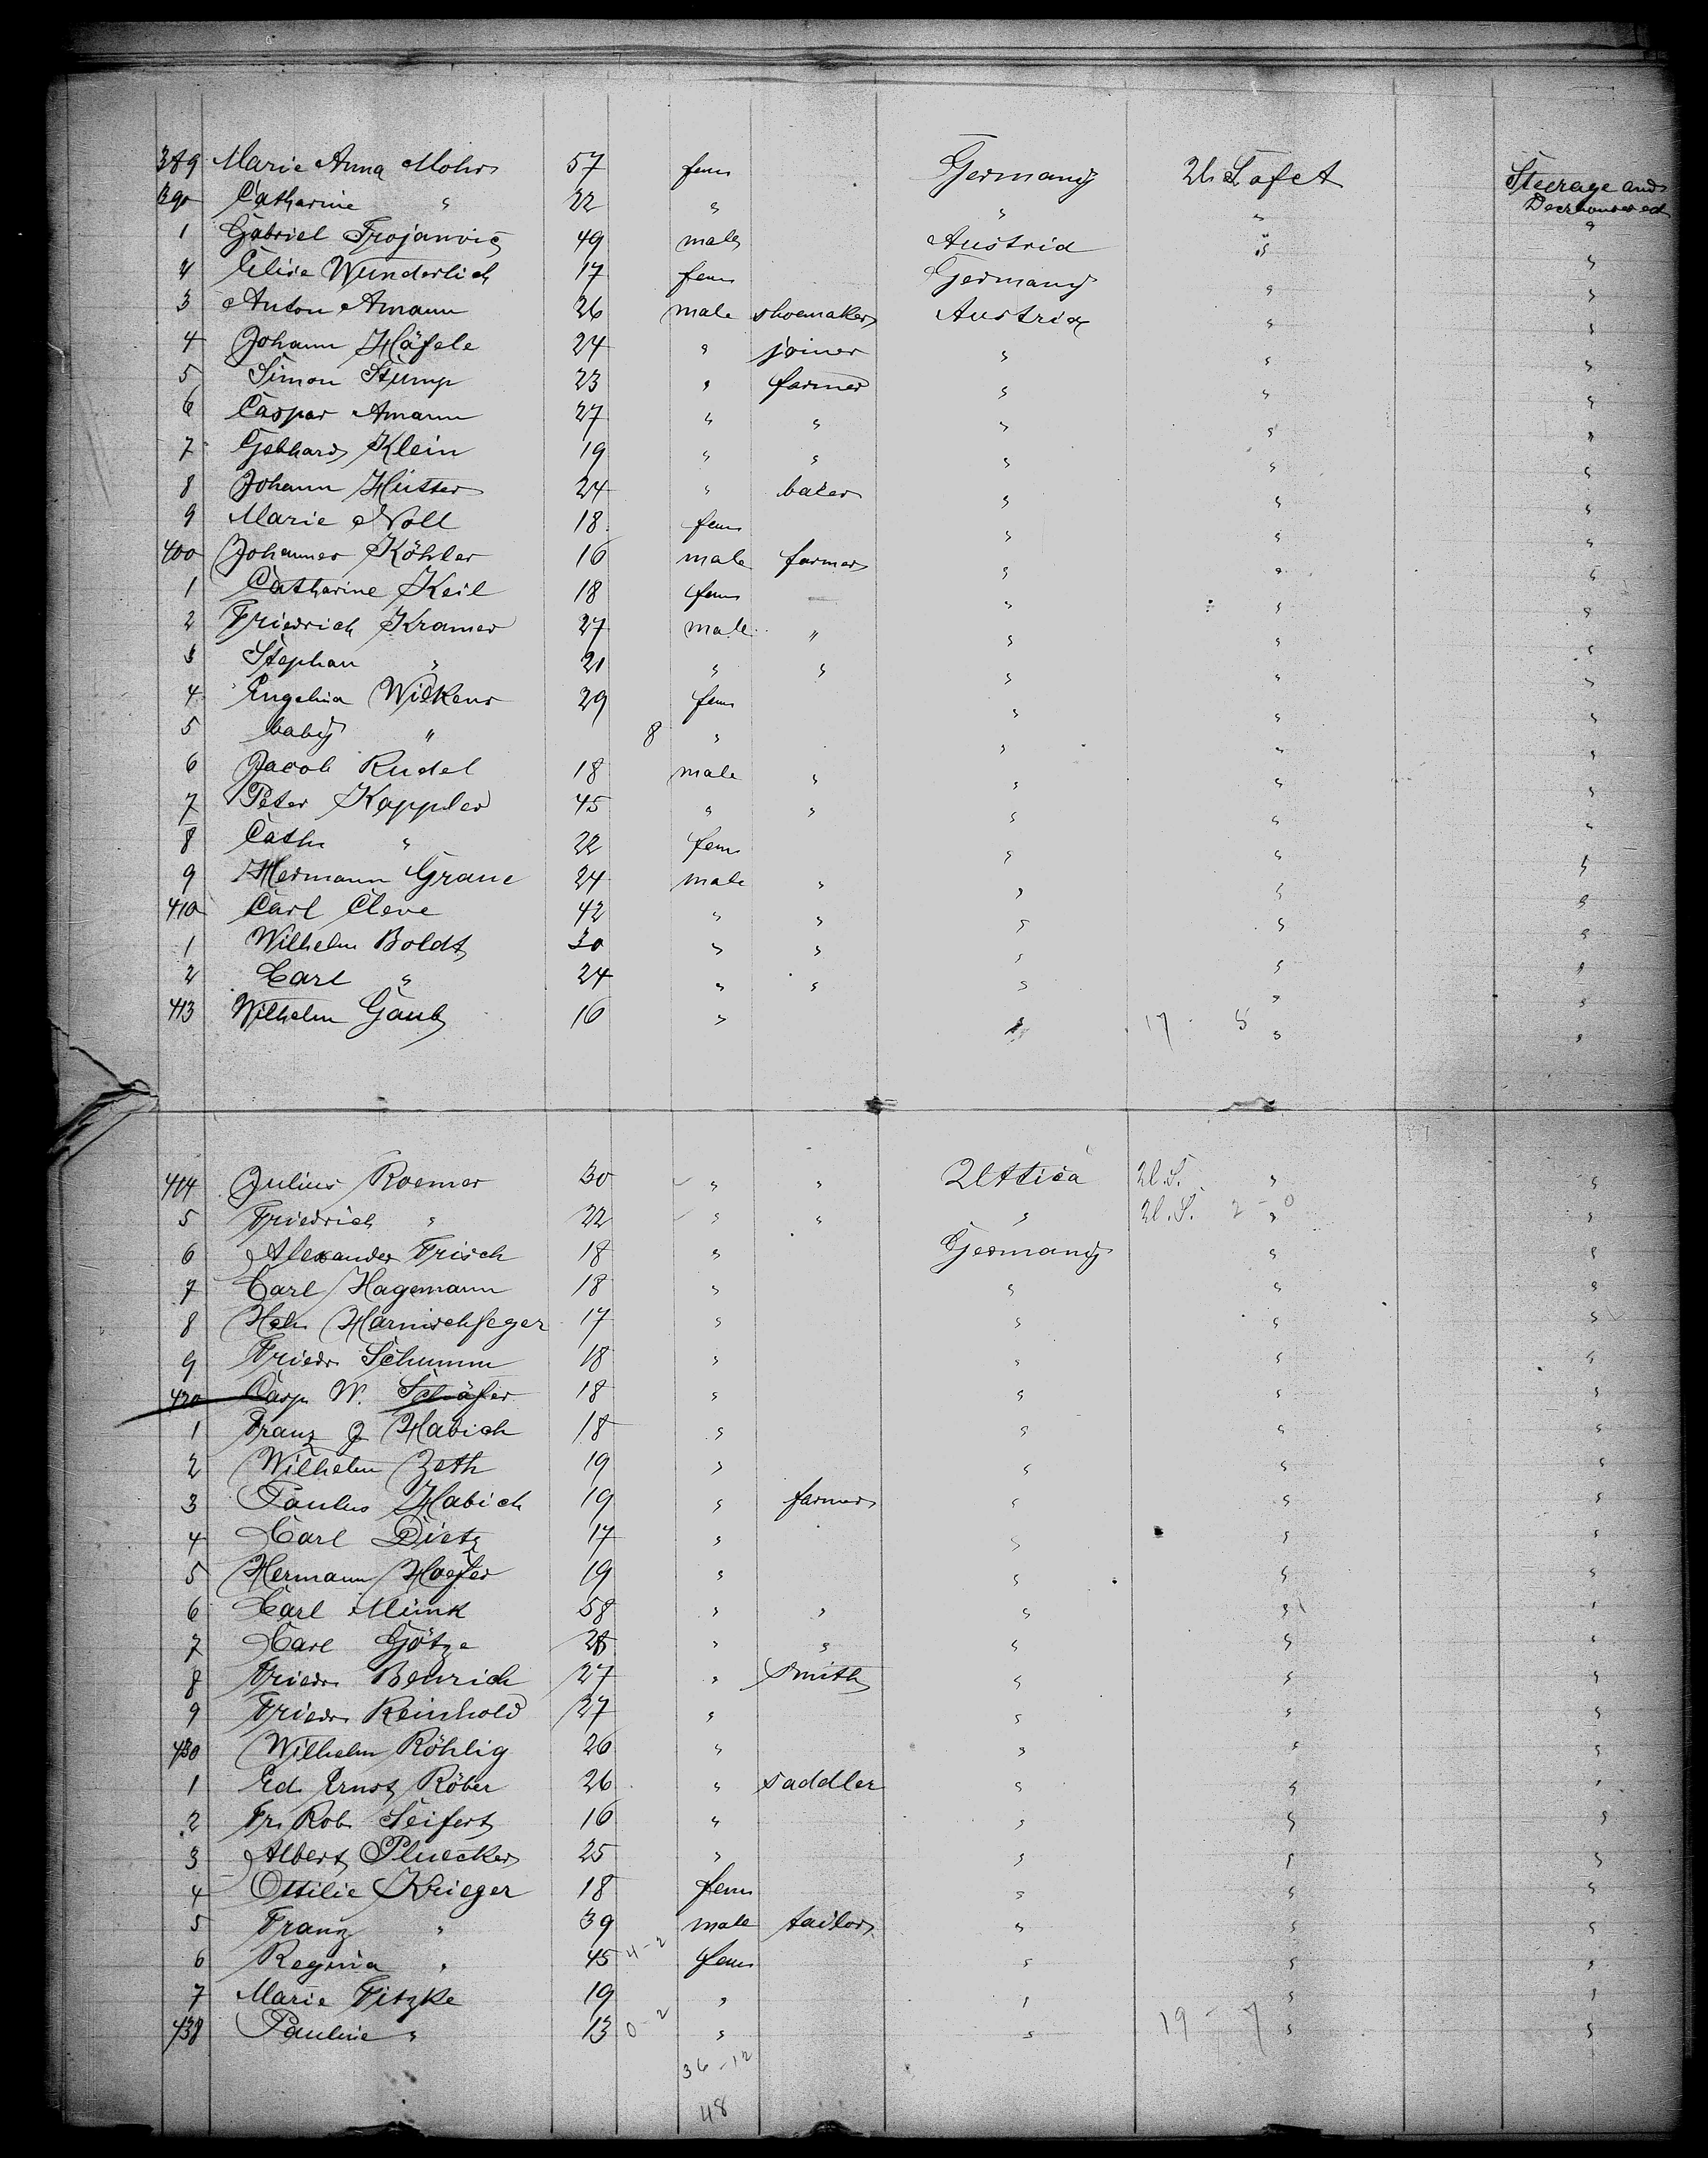 389 Marie Anna Mohr 57 fem Germany U. S. of A Steerage and
390 Catharine " 22 " " " Deckhouse ed
1 Gabriel Trojanvic 49 male Austria " "
2 Elise Wunderlich 17 fem Germany " "
3 Anton Amann 26 male shoemaker Austria " "
4 Johann Häfele 24 " joiner " " "
5 Simon Stump 23 " farmer " " "
6 Caspar Amann 27 " " " " "
7 Gebhard Klein 19 " " " " "
8 Johann Hutter 24 " baker " " "
9 Marie Noll 18 fem " " "
400 Johannes Köhler 16 male farmer " " "
1 Catharine Keil 18 fem — " " "
2 Friedrich Kramer 27 male " " " "
3 Stephan " 21 " " " " "
4 Engelina Wickens 29 fem " " "
5 baby " 8 " " " "
6 Jacob Rudel 18 male " " " "
7 Peter Kappler 45 " " " " "
8 Cath " 22 fem " " "
9 Hermann Graue 24 male " " " "
410 Carl Cleve 42 " " " " "
1 Wilhelm Boldt 30 " " " " "
2 Carl " 24 " " " " "
413 Wilhelm Gaub 16 " " 17 - 8 " "
414 Julius Roemer 30 " " U. S. " "
5 Friedrich " 22 " " " U. S. 2 - 0 " "
6 Alexander Frisch 18 " Germany " "
7 Carl Hagemann 18 " " " "
8 Hch Harnischfeger 17 " " " "
9 Friedr Schumm 18 " " " "
420 Casp W. Schäfer 18 " " " "
1 Franz J Habich 18 " " " "
2 Wilhelm Zeth 19 " " " "
3 Paulus Habich 19 " farmer " " "
4 Carl Dietz 17 " " " "
5 Hermann Hoefer 19 " " " "
6 Carl Münk 58 " " " " "
7 Carl Götze 28 " " " " "
8 Friedr Benrich 27 " smith " " "
9 Friedr Reinhold 27 " " " "
430 Wilhelm Röhlig 26 " " " "
1 Ed. Ernst Röber 26 " saddler " " "
2 Fr. Rob Seifert 16 " " " "
3 Albert Pluecker 25 " " " "
4 Ottilie Krieger 18 fem " " "
5 Franz " 39 male tailor " " "
6 Regina " 45 4-2 fem " " "
7 Marie Titzke 19 " " " "
438 Pauline " 13 0-2 " " 19 - 7 " "
36-12
48